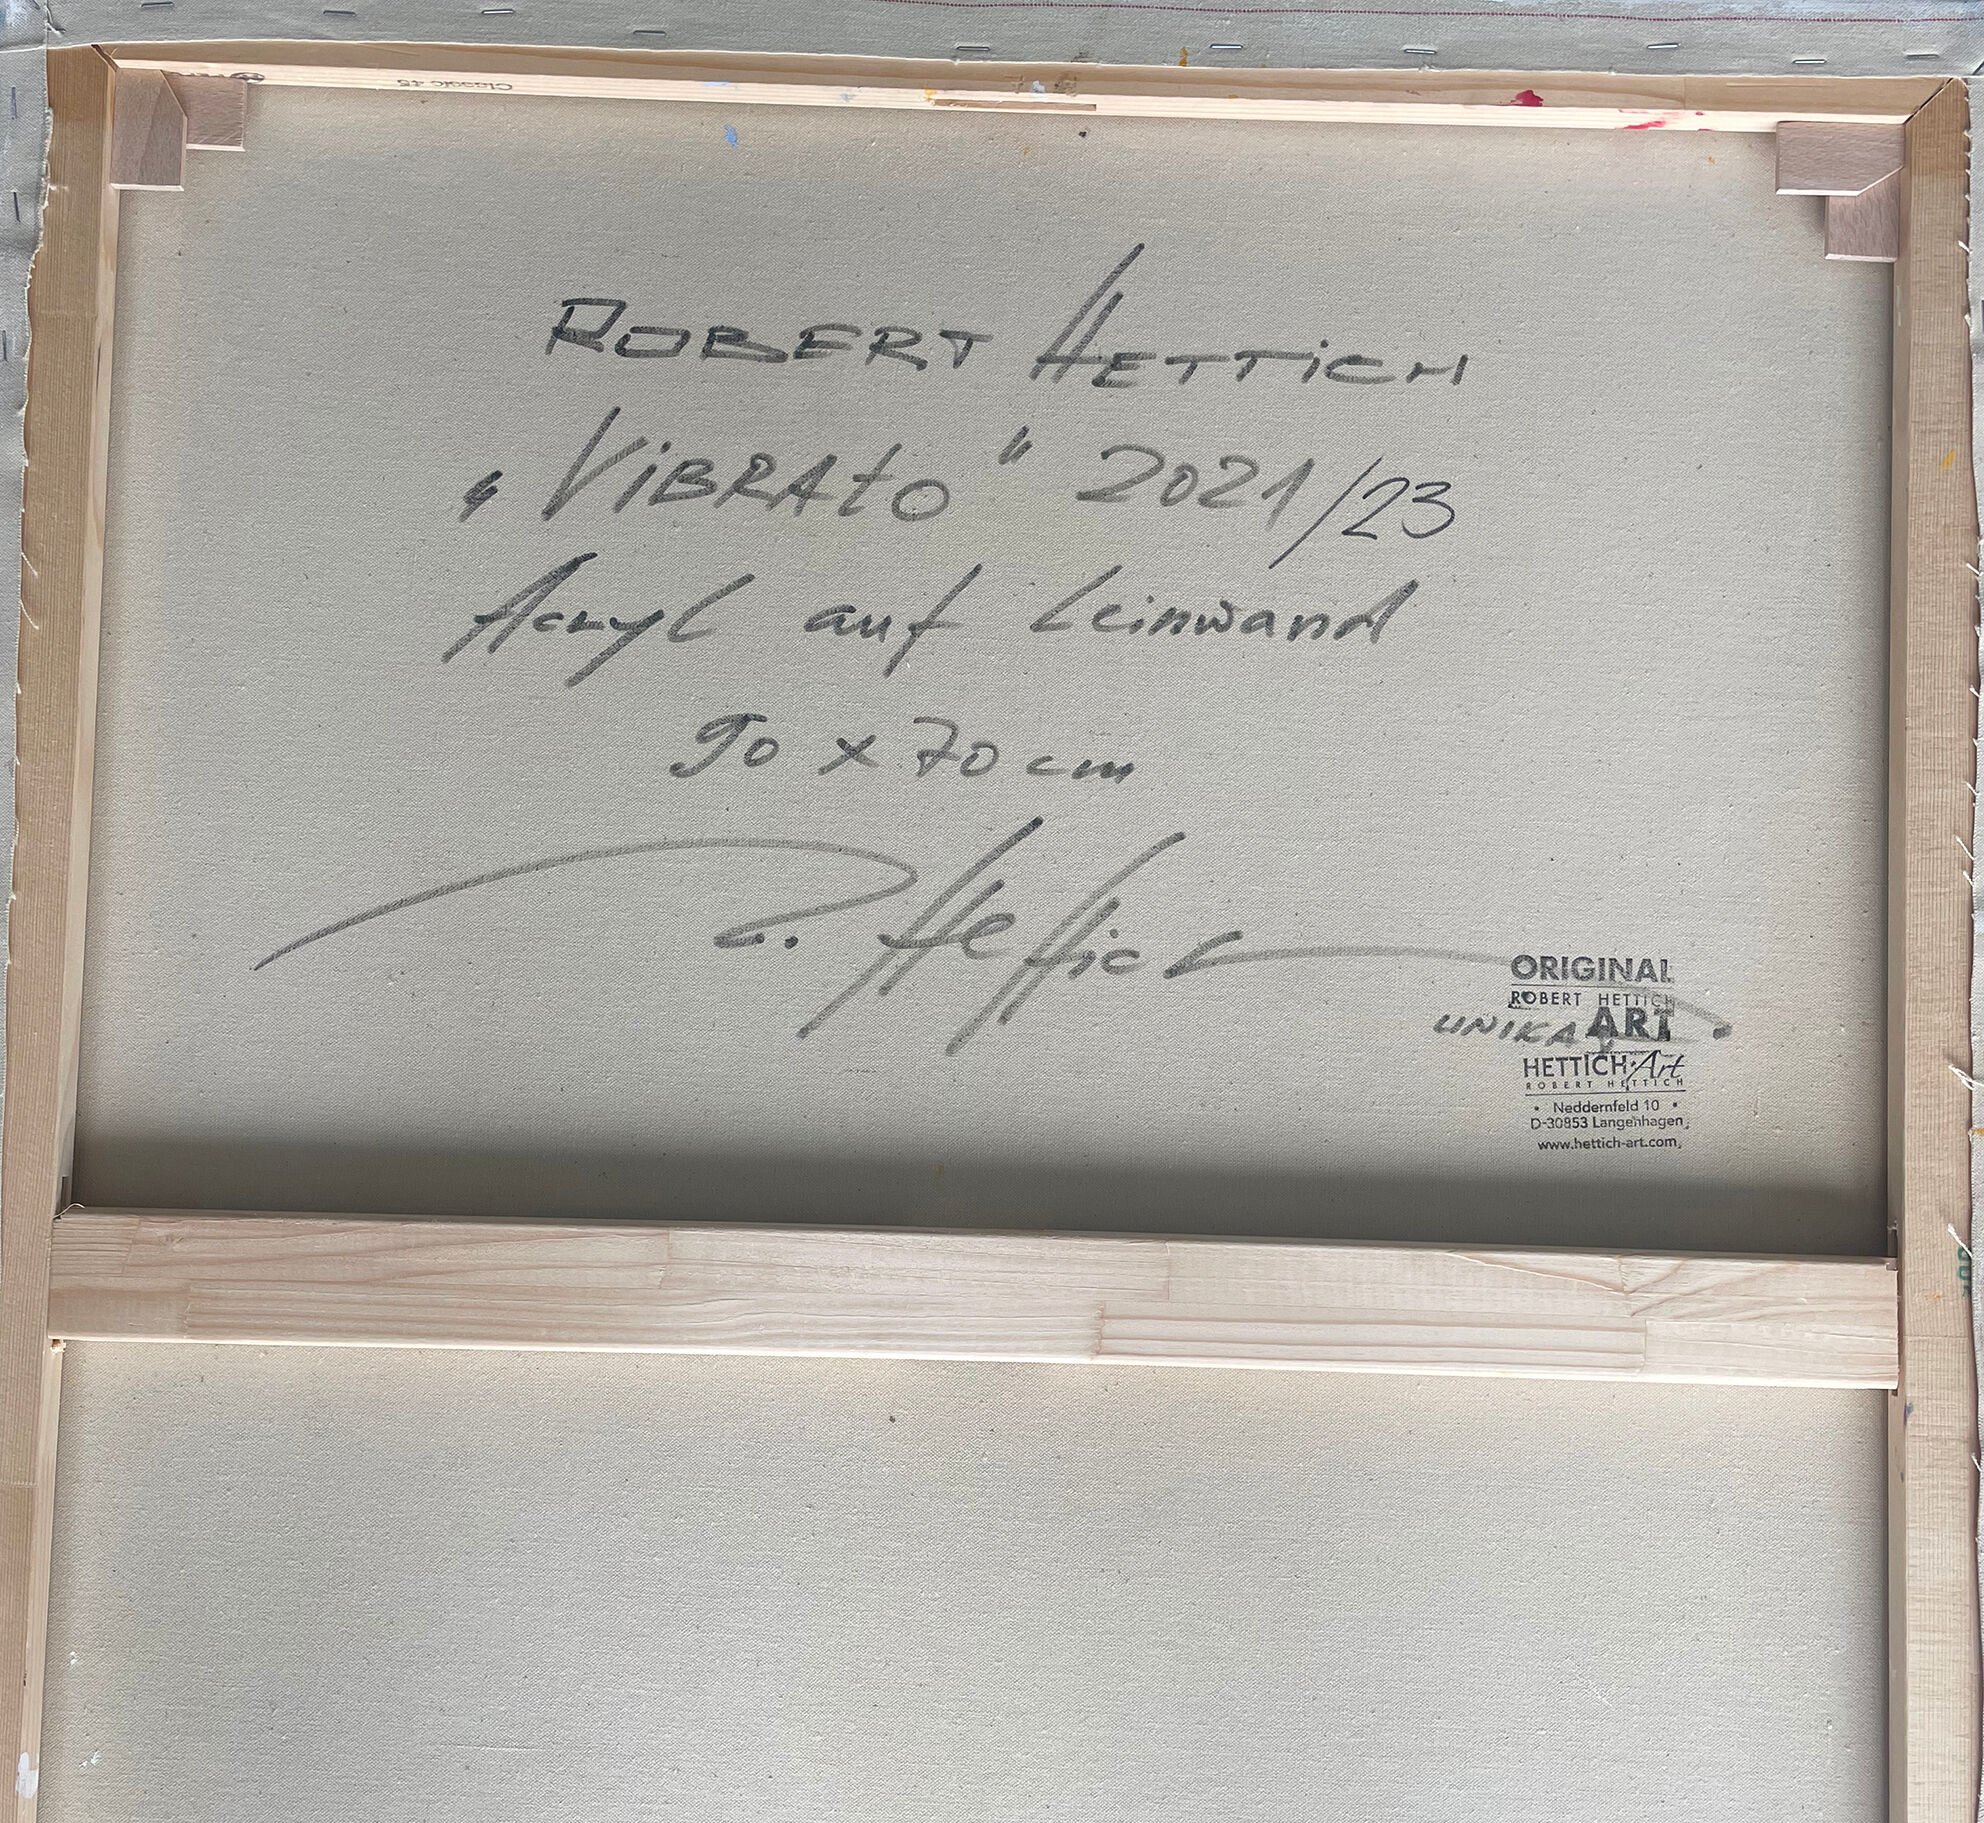 Classic 45
ROBERT HETTiCH
„ViBRAtO" 2021/23
Acryl auf Leinwand
90 x 70 cm
R. Hettich
ORIGINAL
ROBERT HETTICH
ART
UNIKAT
HETTICH Art
ROBERT HETTICH
• Neddernfeld 10 •
D-30853 Langenhagen
www.hettich-art.com